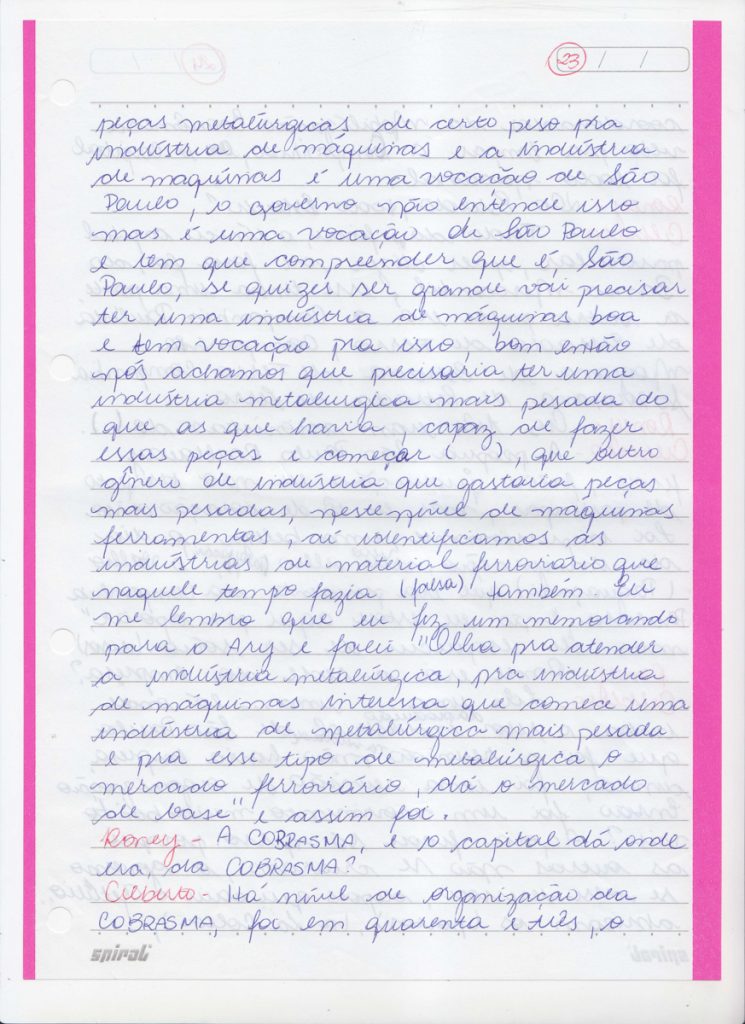 23 / /
peças metalúrgicas de certo peso pra
indústria de máquinas e a indústria
de maquínas é uma vocação de São
Paulo, o governo não entende isso
mas é uma vocação de São Paulo
e tem que compreender que é, São
Paulo, se quizer ser grande vai precisar
ter uma indústria de máquinas boa
e tem vocação pra isso, bom então
nós achamos que precisaria ter uma
indústria metalurgica mais pesada do
que as que havia, capaz de fazer
essas peças e começar ( ), que outro
gênero de indústria que gastaria peças
mais pesadas, neste nível de máquinas
ferramentas, aí identificamos as
indústrias de material ferroviário que
naquele tempo fazia (falsa) também. Eu
me lembro que eu fiz um memorando
para o Ary e falei "Olha pra atender
a indústria metalúrgica, pra indústria
de máquinas interessa que comece uma
indústria de metalúrgica mais pesada
e pra esse tipo de metalúrgica, o
mercado ferroviário, dá o mercado
de base" e assim foi.
Roney - A COBRASMA, e o capital dá onde
era, da COBRASMA?
Gilberto - Há nível de organização da
COBRASMA, foi em quarenta e três, o
spiral